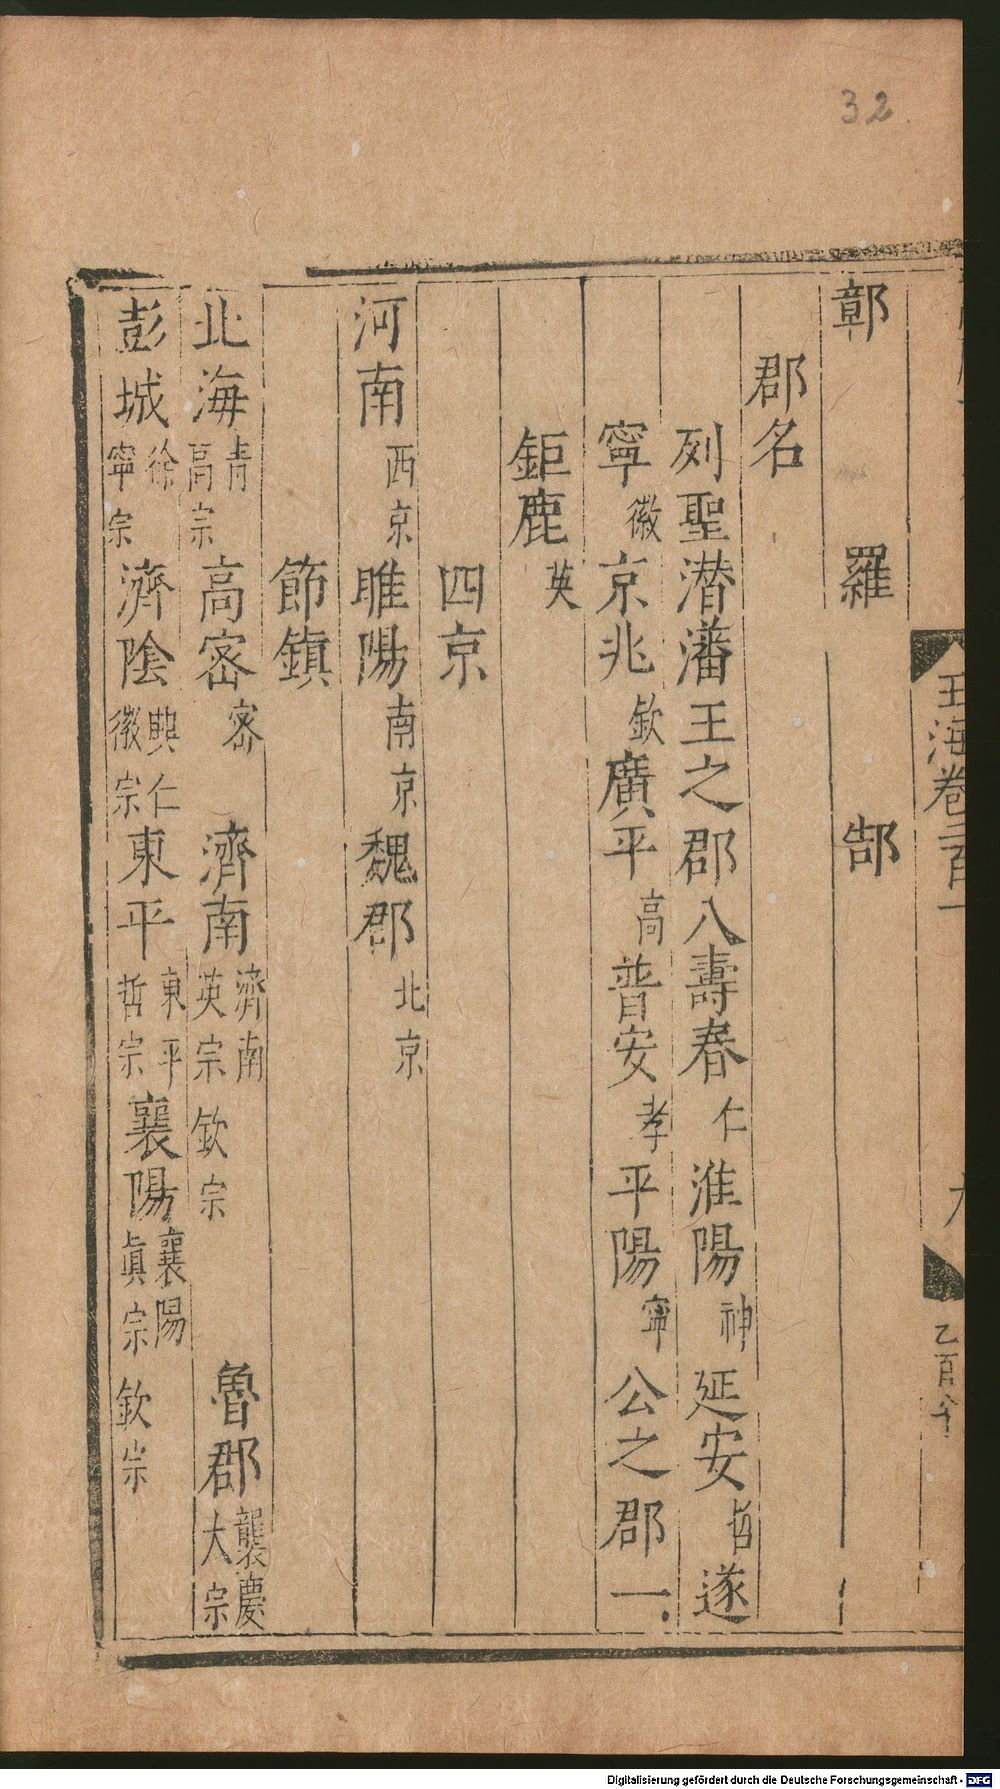 32
玉海卷二百一
鄣 羅 郜
郡名
列聖潜藩王之郡八壽春仁淮陽神延安哲遂
寧徽京兆欽廣平高普安孝平陽寧公之郡一
鉅鹿英
四京
河南西京睢陽南京魏郡北京
節鎮
北海青高宗高密密濟南濟南英宗欽宗魯郡襲慶大宗
彭城徐寧宗濟陰興仁徽宗東平東平哲宗襄陽襄陽真宗欽宗
Digitalisierung gefördert durch die Deutsche Forschungsgemeinschaft - DFG